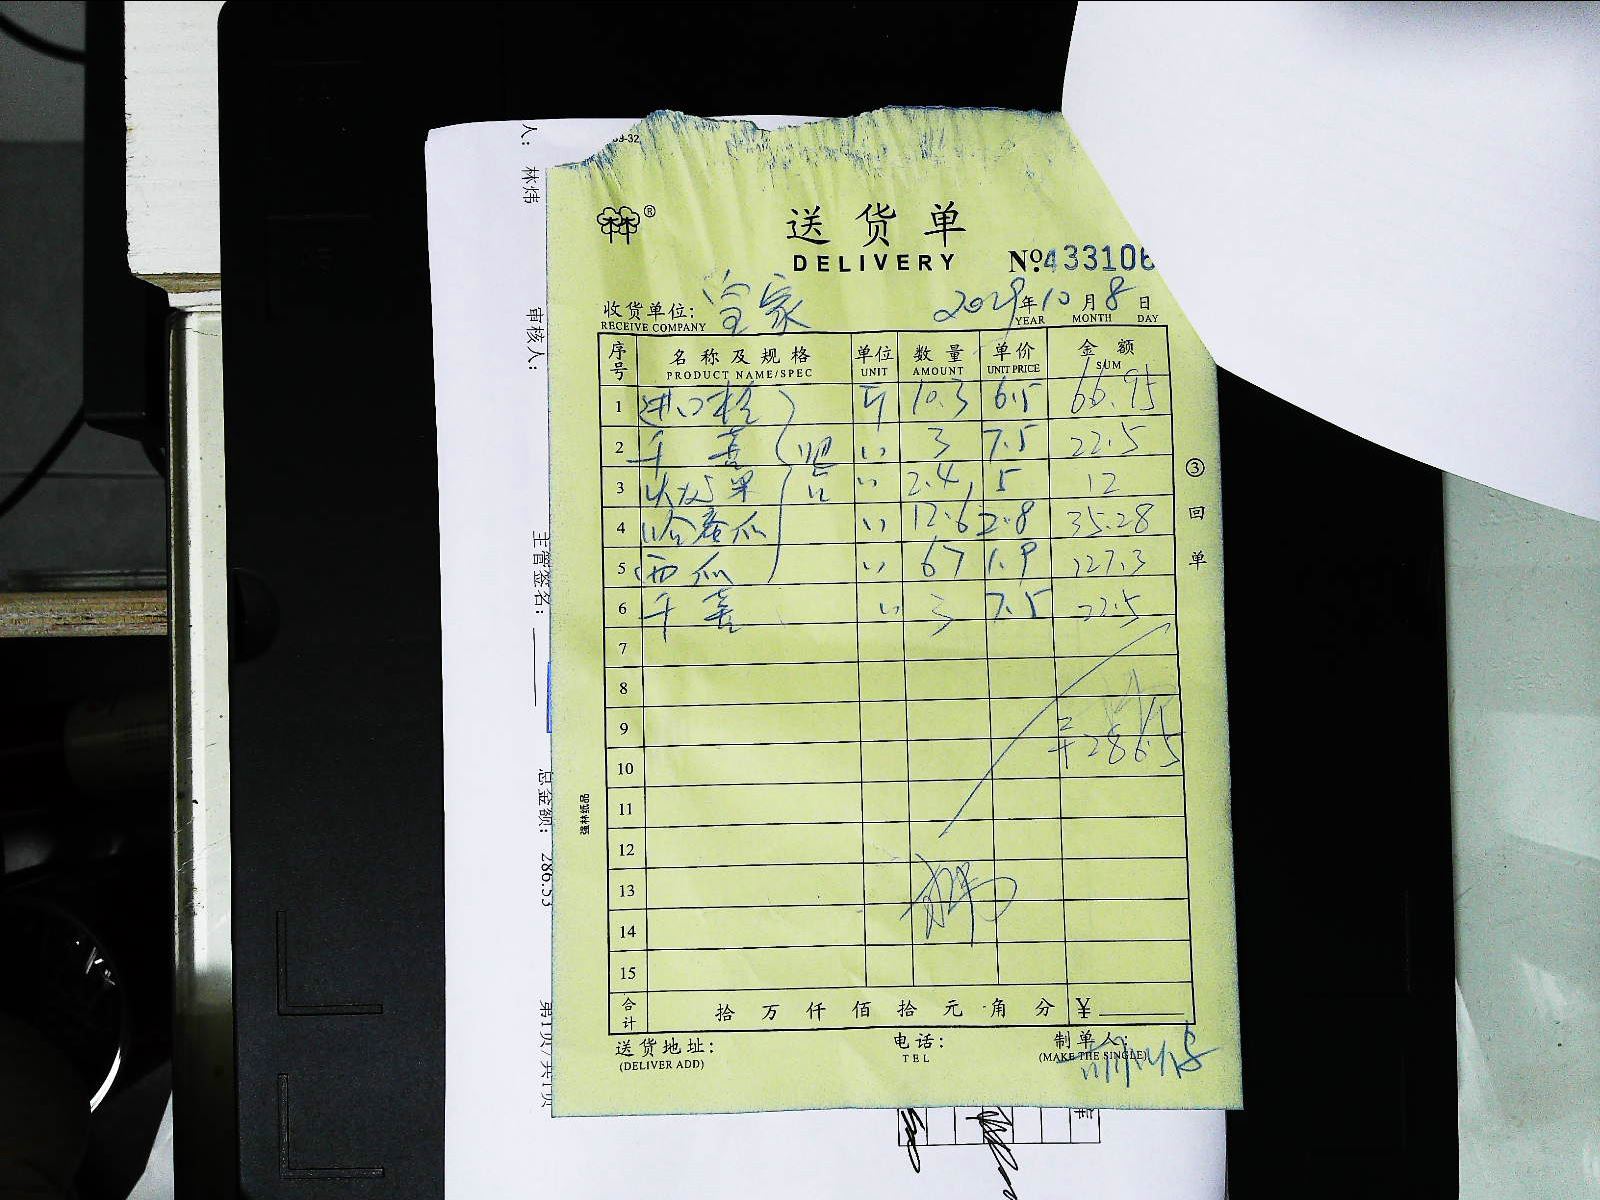 送货单
DELIVERY
№433106
收货单位: 宜家 2029年10月8日
RECEIVE COMPANY YEAR MONTH DAY
序号 名称及规格 单位 数量 单价 金额
PRODUCT NAME/SPEC UNIT AMOUNT UNIT PRICE SUM
1 进口橙 斤 10.3 6.5 66.95
2 千喜 〃 3 7.5 22.5
3 火龙果 〃 2.4 5 12
4 哈蜜瓜 〃 12.6 2.8 35.28
5 西瓜 〃 67 1.9 127.3
6 千喜 〃 3 7.5 22.5
7
8
9
10
¥286.5
11
12
13
14
15
合计 拾万仟佰拾元角分 ¥
送货地址: 电话: 制单人:
(DELIVER ADD) TEL (MAKE THE SINGLE)
③回单
强林纸品
人: 林炜
审核人:
主管签名:
总金额: 286.53
第1页/共1页